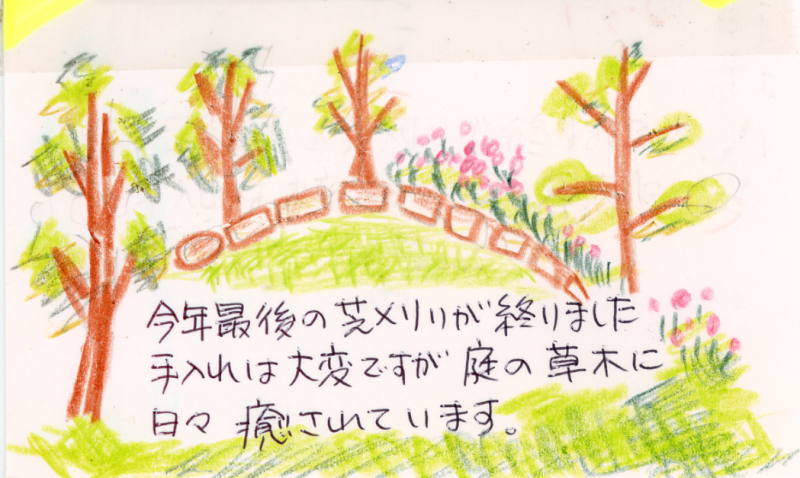 今年最後の芝メリリが終りました
手入れは大変ですが庭の草木に
日々癒されています。